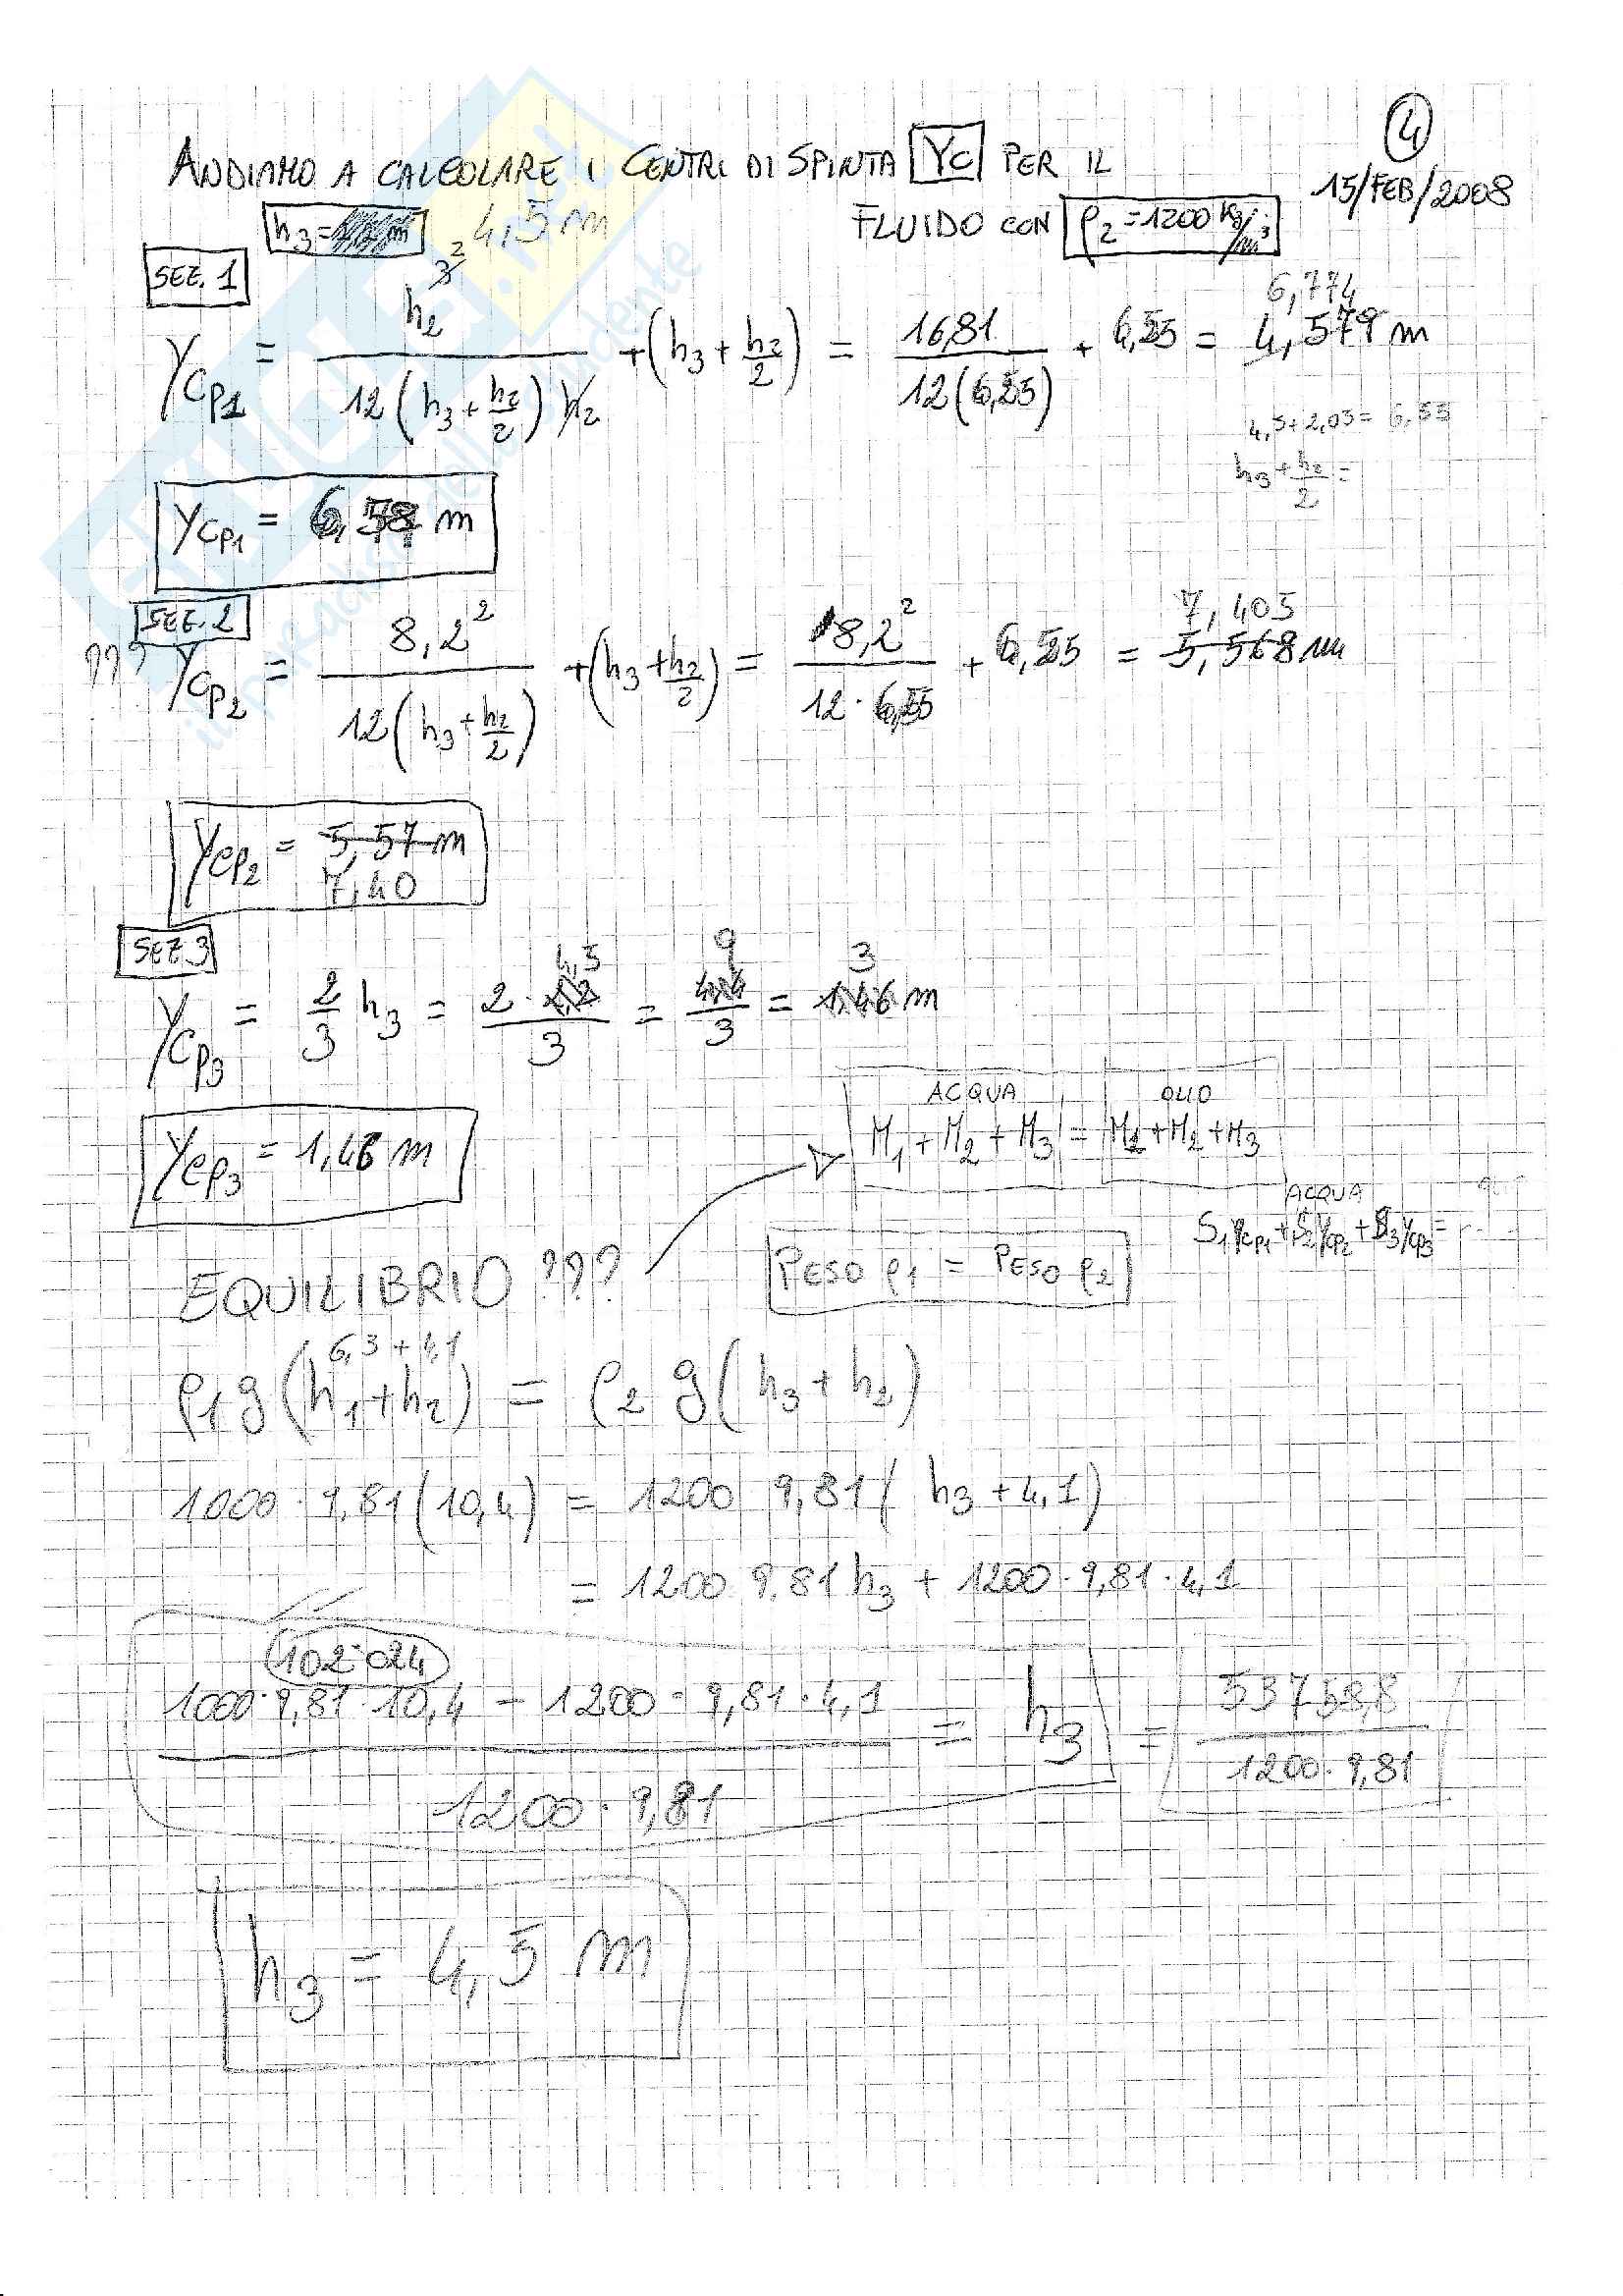 4
ANDIAMO A CALCOLARE I CENTRI DI SPINTA Yc PER IL
15/FEB/2008
h3 = 4,5 m
FLUIDO CON ρ2 = 1200 kg/m³
SEZ. 1
Ycp1 = h2^2 / 12(h3 + h2/2) h2 + (h3 + h2/2) = 16,81 / 12(6,55) + 6,55 = 4,579 m
6,774
4,5 + 2,05 = 6,55
h3 + h2/2 =
Ycp1 = m
SEZ. 2
??? Ycp2 = 8,2² / 12(h3 + h2/2) + (h3 + h2/2) = 8,2² / 12 · 6,55 + 6,55 = 5,568 m
7,405
Ycp2 = 5,57 m
7,40
SEZ 3
Ycp3 = 2/3 h3 = 2 · 4,5 / 3 = 9 / 3 = 3 m
ACQUA OLIO
M1 + M2 + M3 = M1 + M2 + M3
Ycp3 = 1,46 m
ACQUA
S1 Ycp1 + S2 Ycp2 + S3 Ycp3 =
EQUILIBRIO ???
PESO ρ1 = PESO ρ2
6,3 + 4,1
ρ1 g (h1 + h2) = ρ2 g (h3 + h2)
1000 · 9,81 (10,4) = 1200 9,81 ( h3 + 4,1)
= 1200 9,81 h3 + 1200 · 9,81 · 4,1
102·024
1000 · 9,81 · 10,4 - 1200 · 9,81 · 4,1 / 1200 · 9,81 = h3 = 53758,8 / 1200 · 9,81
h3 = 4,5 m